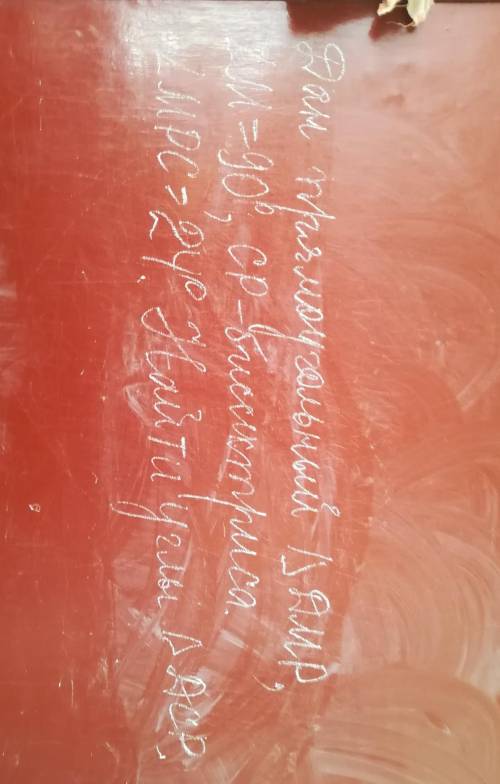 Дан прямоугольный △ АМР,
∠М = 90°, СР - биссектриса
∠МРС = 24°. Найти углы △ АСР.